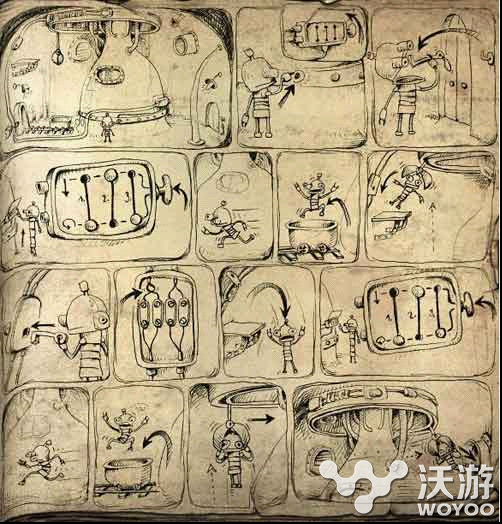 1. 2. 3.
1. 2. 3.
沃游
WOYOO